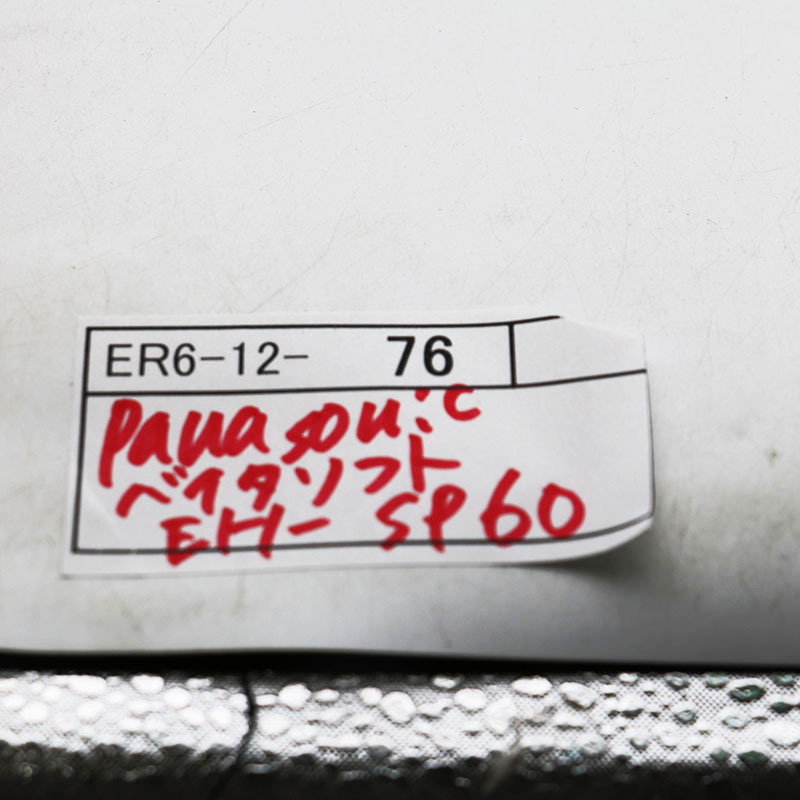 ER6-12- 76
Panasonic
ベイタソフト
EH-SP60